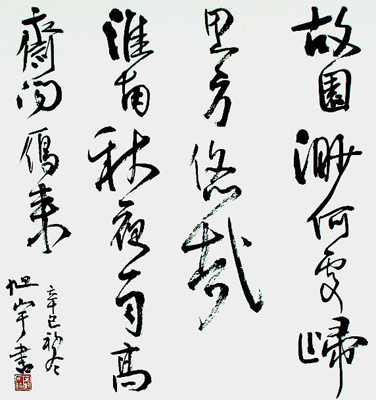 故園渺何處歸
思方悠哉
淮南秋夜雨高
齋聞鴈来
辛巳初冬
旭宇書